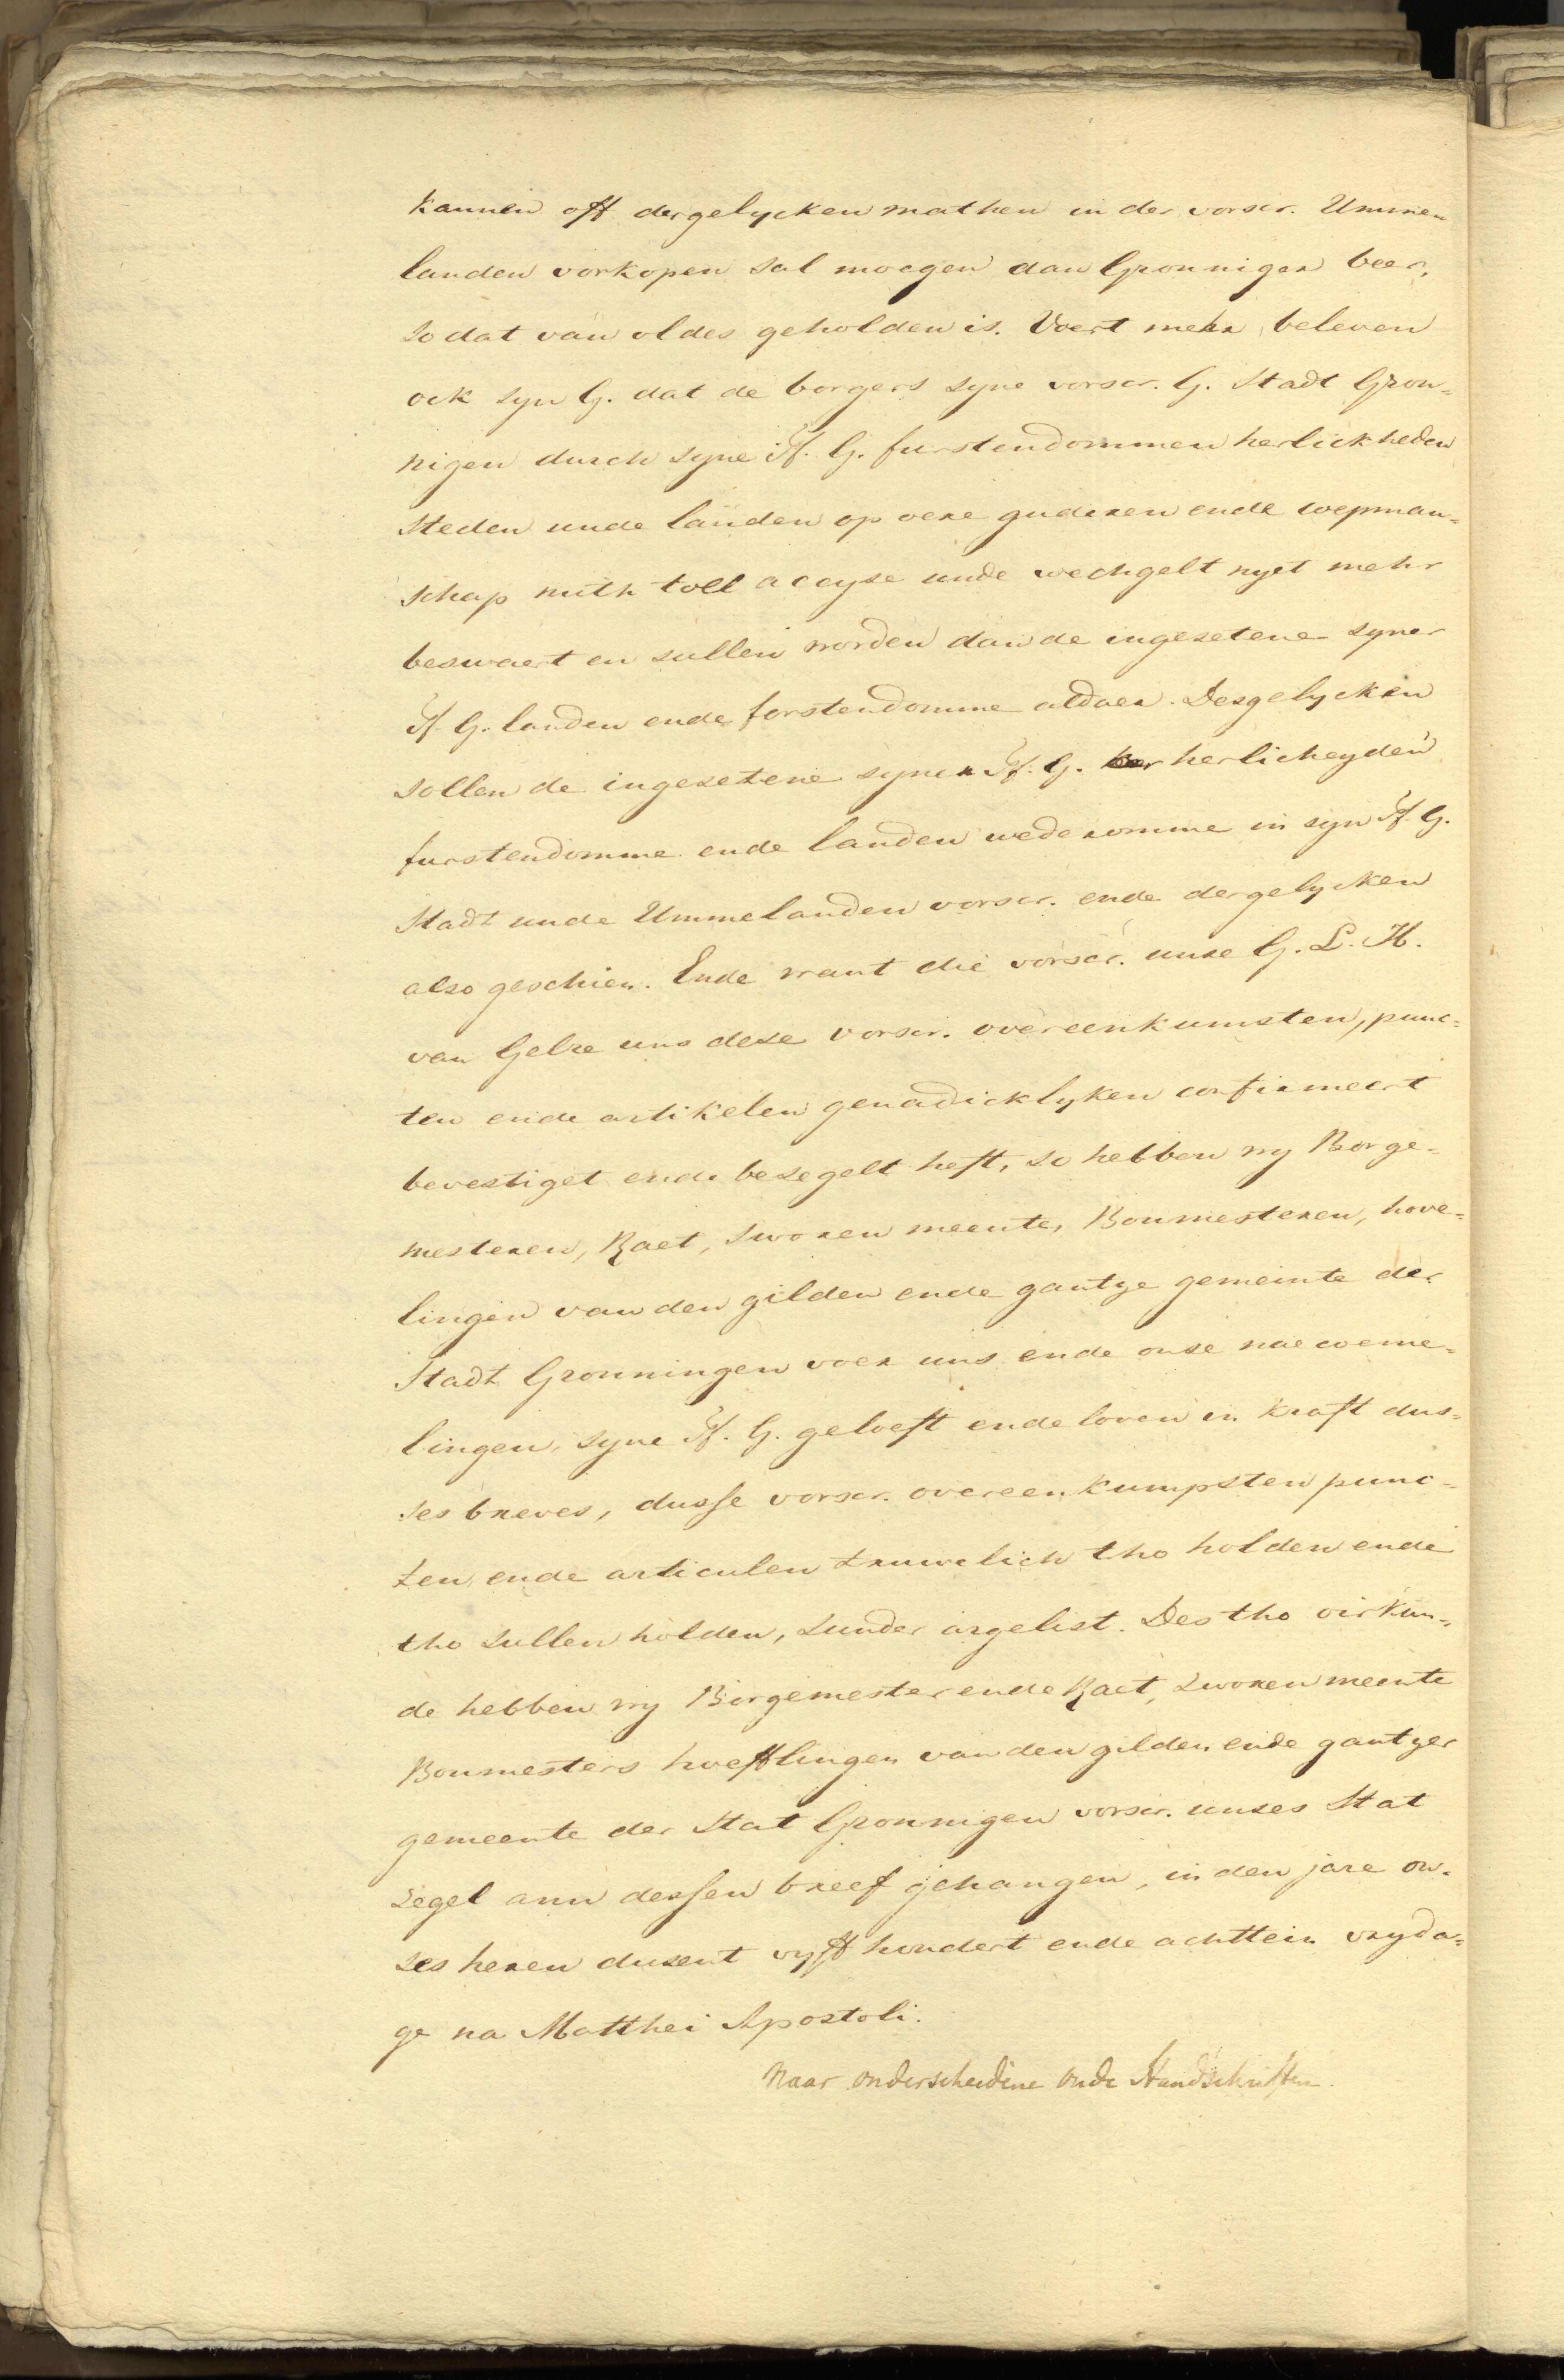 kannen off dergelycken mathen in der vorscr. Ummen
landen vorkopen sal moegen dan Gronniger beer,
so dat van oldes geholden is. Voert mehr beleven
ock syn G. dat de borgers syne vorscr. G. Stadt Gron-
nigen durch syne F. G. furstendommen herlickheden
steden unde landen op oere guderen ende coepman-
schap mith toll accyse unde wechgelt nyet mehr
beswaert en sullen worden dan de ingesetene syner
F. G. landen ende forstendomme aldaer. Desgelycken
sollen de ingesetene syner F. G. herlicheyden
furstendomme ende landen wederomme in syn F. G.
Stadt unde Ummelanden vorscr. ende dergelycken
also geschien. Ende want die vorscr. unse G. L. H.
van Gelre uns dese vorscr. overeenkumsten, punc-
ten ende artikelen genadicklyken confirmeert
bevestiget ende besegelt heft, so hebben wy Borge-
mesteren, Raet, sworen meente, Boumesteren, hove-
lingen van den gilden ende gantze gemeinte der
Stadt Gronningen voer uns ende onse naecome-
lingen, syne F. G. geloeft ende loven in kraft dus-
ses breves, dusse vorscr. overeenkumpsten punc-
ten ende articulen truwelich tho holden ende
tho sullen holden, sunder argelist. Des tho oirkun-
de hebben wy Borgemester ende Raet, sworen meente
Boumesters hoefflingen van den gilden ende gantzer
gemeente der Stat Gronnigen vorscr. unses Stat
segel ann dessen breef gehangen, in den jare on-
ses heren dusent vyff hondert ende achttein vryda-
ge na Matthei Apostoli.
Naar onderscheidene oude Handschriften.